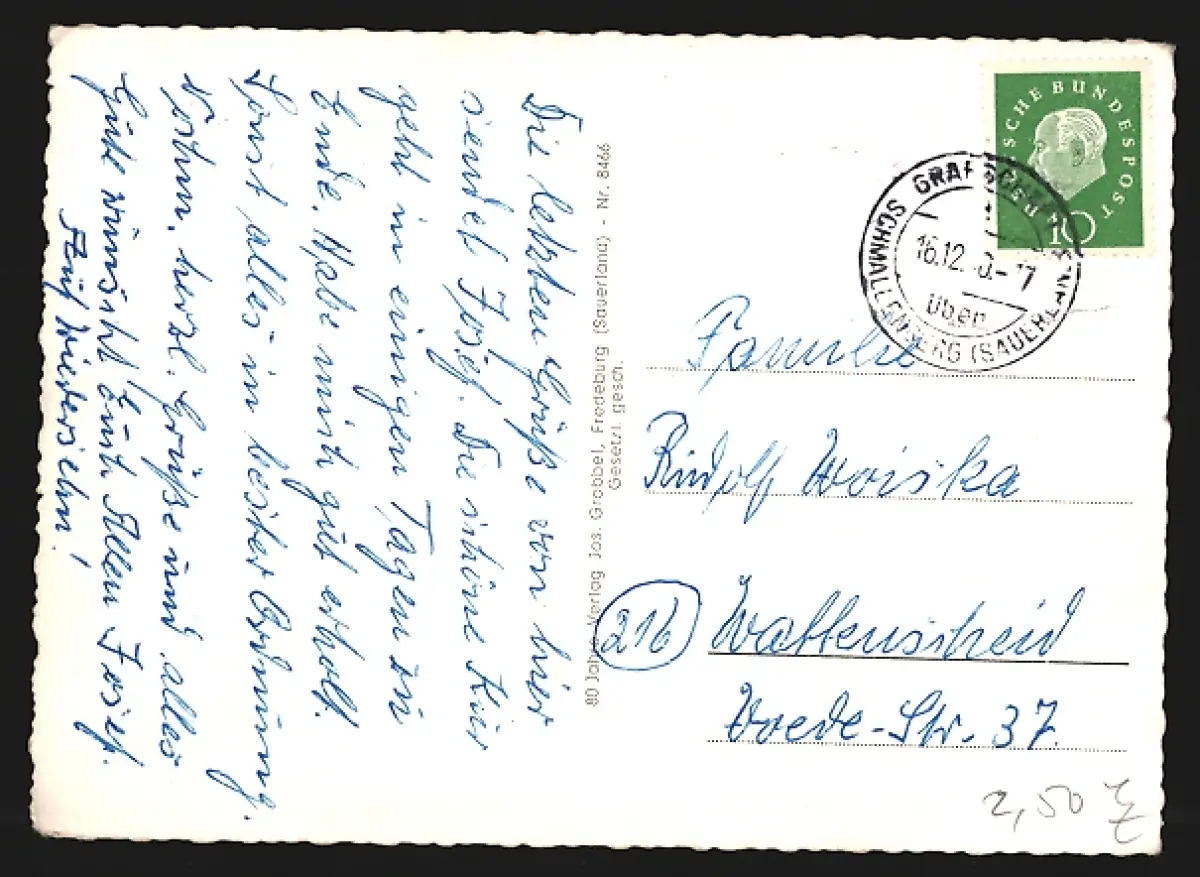 Die letzten Grüße von hier
sendet Josef. Die schöne Kur
geht in einigen Tagen zu
Ende. Habe mich gut erholt.
Sonst alles in bester Ordnung.
Nochm. herzl. Grüße und alles
Gute wünscht Euch Allen Josef.
Auf Wiedersehn!
80 Jahre Verlag Jos. Grobbel, Fredeburg (Sauerland) - Nr. 8466
Gesetzl. gesch.
SCHE BUNDESPOST
10
GRAFSCHAFT
16.12. -17
über
SCHMALLENBERG (SAUERLAND)
Familie
Rudolf Woiska
(21b) Wattenscheid
Voede-Str. 37.
2,50